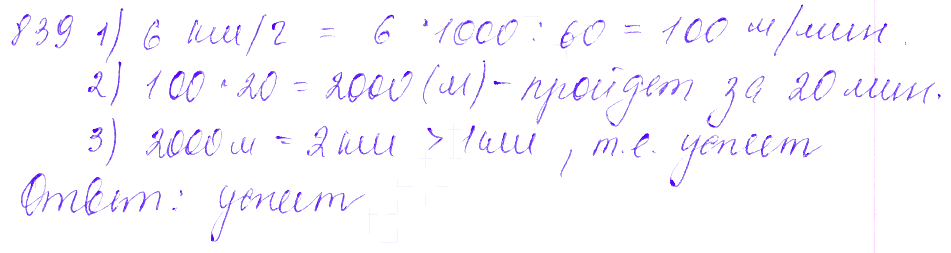 839 1) 6 км/г = 6 · 1000 : 60 = 100 м/мин.
2) 100 · 20 = 2000 (м) - пройдет за 20 мин.
3) 2000 м = 2 км > 1 км, т.е. успеет
Ответ: успеет